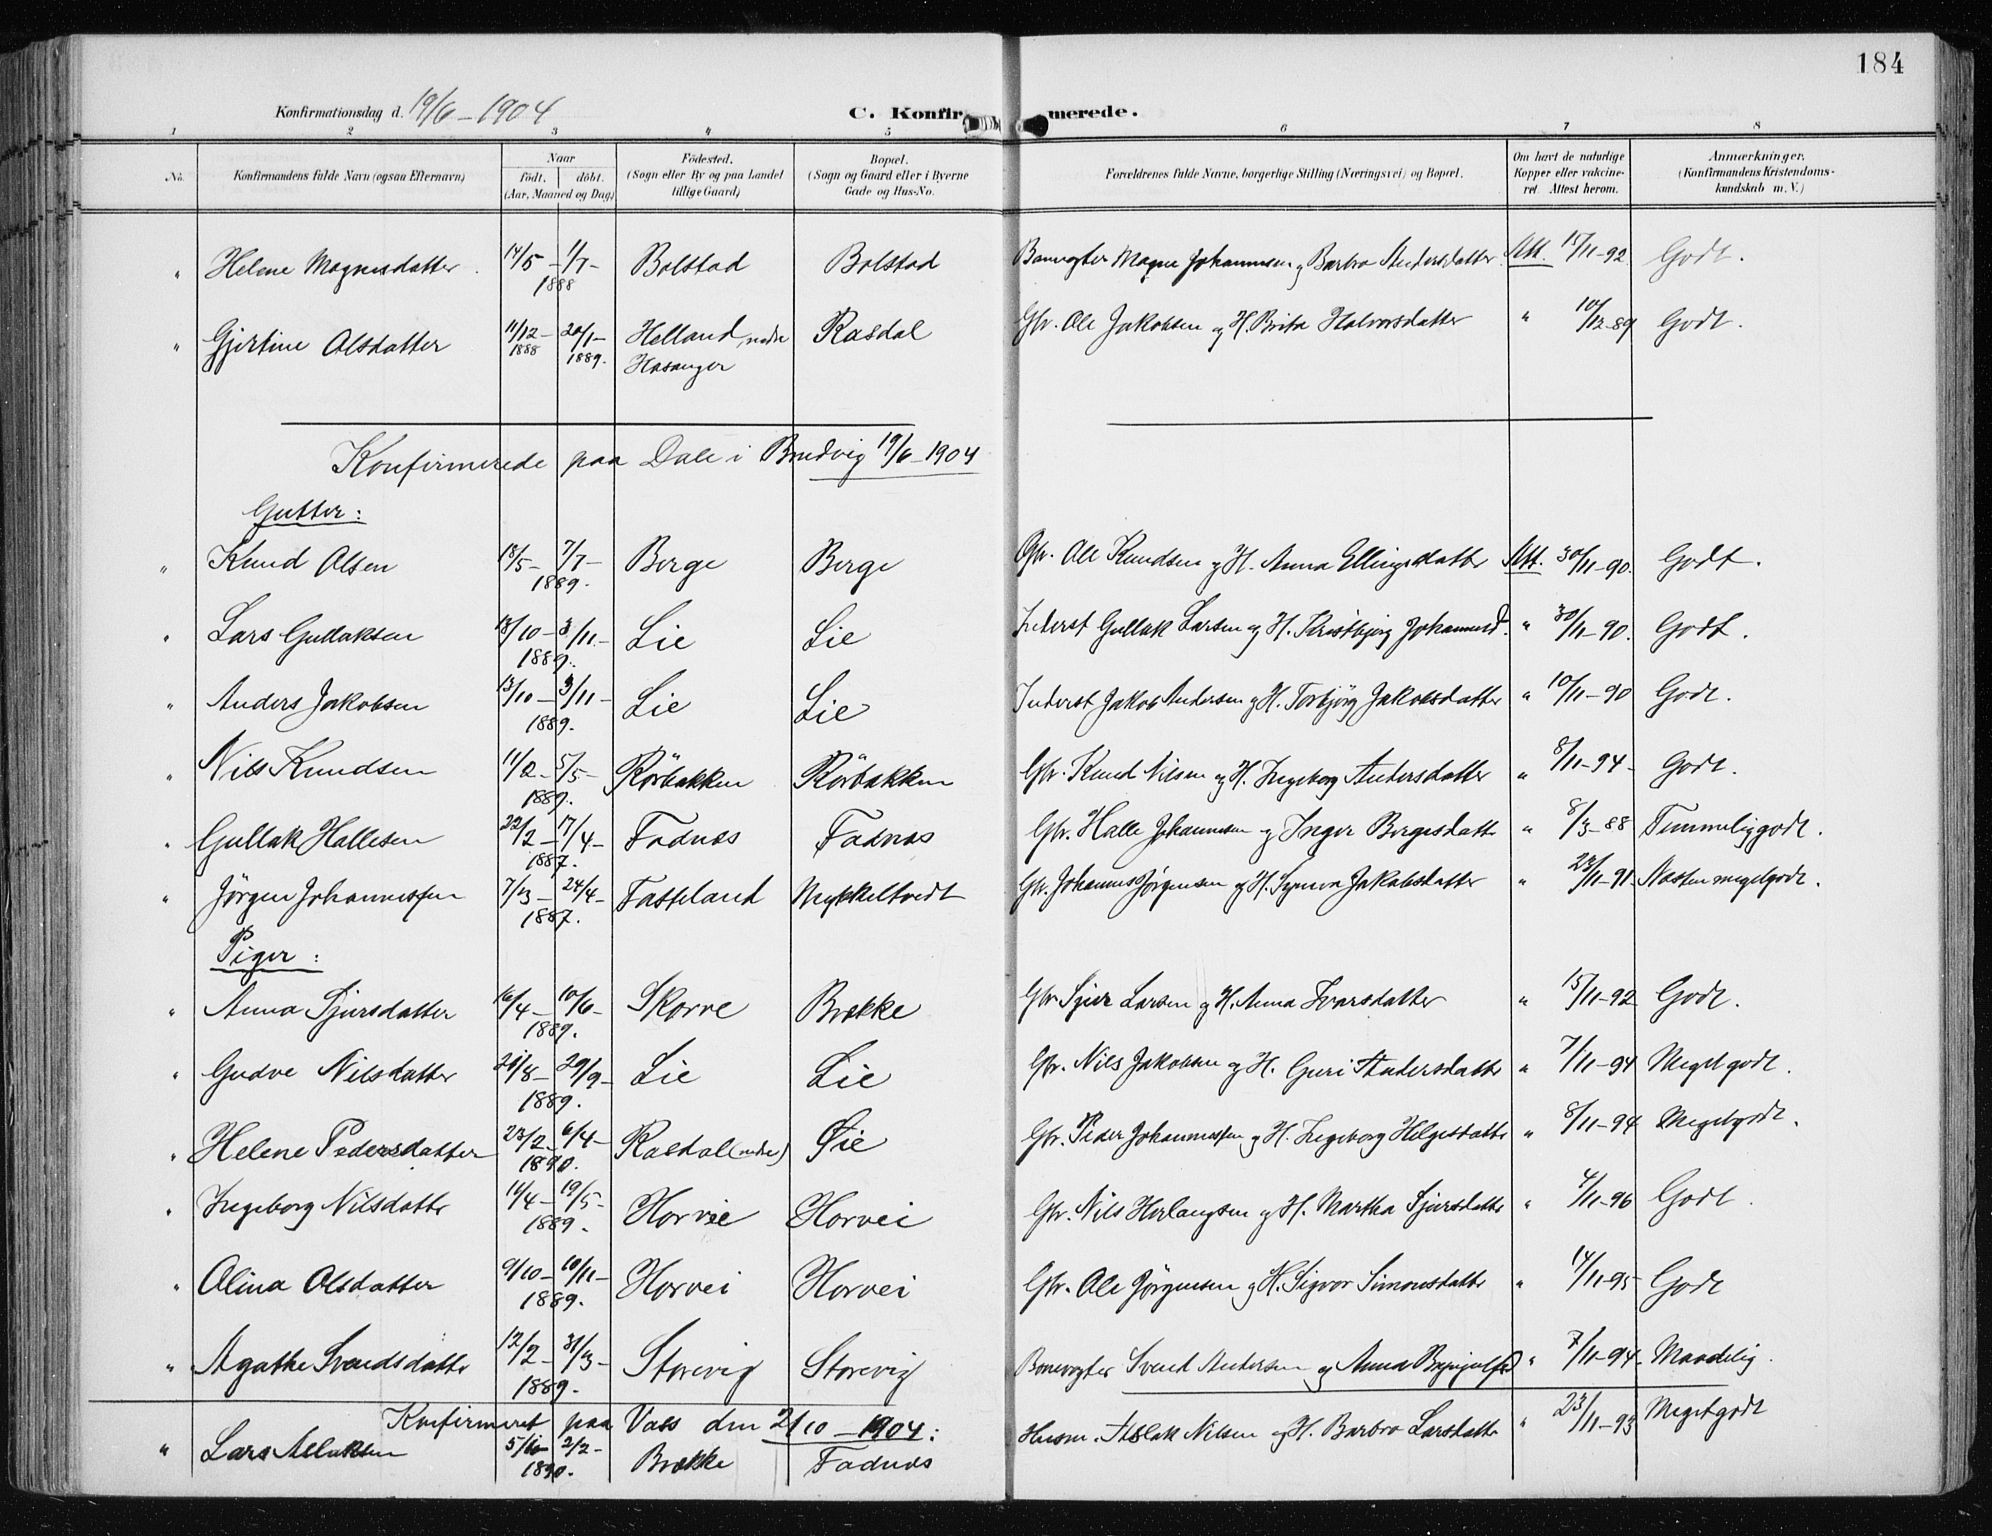 184
Konfirmationsdag d. 19/6 - 1904 C. Konfirmerede.
1 2 3 4 5 6 7 8
No. Konfirmandens fulde Navn (ogsaa Efternavn) Naar født. døbt. (Aar, Maaned og Dag) Fødested. (Sogn eller By og paa Landet tillige Gaard) Bopæl. (Sogn og Gaard eller i Byerne Gade og Hus-No. Forældrenes fulde Navne, borgerlige Stilling (Næringsvei) og Bopæl. Om havt de naturlige Kopper eller vakcineret. Attest herom. Anmærkninger. (Konfirmandens Kristendomskundskab m. V.)
" Helene Magnesdatter 14/5 - 1/7 - 1888 Bolstad Bolstad Banevogter Magne Johannesen og Barbro Andersdatter Att. 15/11-92 Godt.
" Gjertine Olsdatter 11/12 - 1888 20/1 - 1889. Helland, nedre Hosanger Rasdal Gbr. Ole Jakobsen og H. Brita Halvorsdatter " 10/12-89 Godt.
Konfirmerede paa Dale i Bruvig 19/6 - 1904
Gutter:
" Knud Olsen 18/5 - 7/7 - 1889. Berge Berge Gbr. Ole Knudsen og H. Anna Ellingsdatter Att. 30/11-90. Godt.
" Lars Gullaksen 13/10 - 3/11 - 1889. Lie Lie Inderst Gullak Larsen og H. Kristbjørg Johannesd. " 30/11-90. Godt.
" Anders Jakobsen 13/10 - 3/11 - 1889. Lie Lie Inderst Jakob Andersen og H. Torbjørg Jakobsdatter " 10/11-90 Godt.
" Nils Knudsen 11/2 - 5/5 - 1889. Rörbakken Rörbakken Gbr. Knud Nilsen og H. Ingeborg Andersdatter " 8/11-94 - Godt.
" Gullak Hallesen 22/2 - 17/4 - 1887. Fadnæs Fadnæs Gbr. Halle Johannesen og Inger Bergesdatter " 8/3-88 Temmelig godt.
" Jörgen Johannessen 7/3 - 24/4 - 1887. Fasteland Mykkeltvedt Gbr. Johannes Jørgensen og H. Synneva Jakobsdatter " 23/11-91 Næsten meget godt.
Piger:
" Anna Sjursdatter 16/4 - 10/6 - 1889. Skorve Brække Gbr Sjur Larsen og H. Anna Ivarsdatter " 15/11-92 Godt.
" Gudve Nilsdatter 21/8 - 29/9 - 1889. Lie Lie Gbr. Nils Jakobsen og H. Guri Andersdatter " 7/11-94 Meget godt.
" Helene Pedersdatter 23/2 - 6/4 - 1890. Rasdal (nedre) Øie Gbr. Peder Johannessen og H. Ingeborg Helgesdatter " 8/11-94 Meget godt.
" Ingeborg Nilsdatter 11/4 - 19/5 - 1889. Horvie Horvei Gbr. Nils Herlaugsen og H. Martha Sjursdatter " 4/11-96 Godt.
" Olina Olsdatter 9/10 - 10/11 - 1889. Horvei Horvei Gbr. Ole Jørgensen og H. Sigvor Simonsdatter " 14/11-95 Godt
" Agathe Svendsdatter 12/2 - 31/3 - 1889. Storevig Storevig Banevogter Svend Andersen og Anna " 7/11-94 - Maadelig.
Konfirmeret paa Voss den 2/10 - 1904:
" Lars Aslaksen 5/1 - 2/2 - 1890. Brække Fadnæs Husm. Aslak Nilsen og H. Barbro Larsdatter " 23/11-93 Meget godt